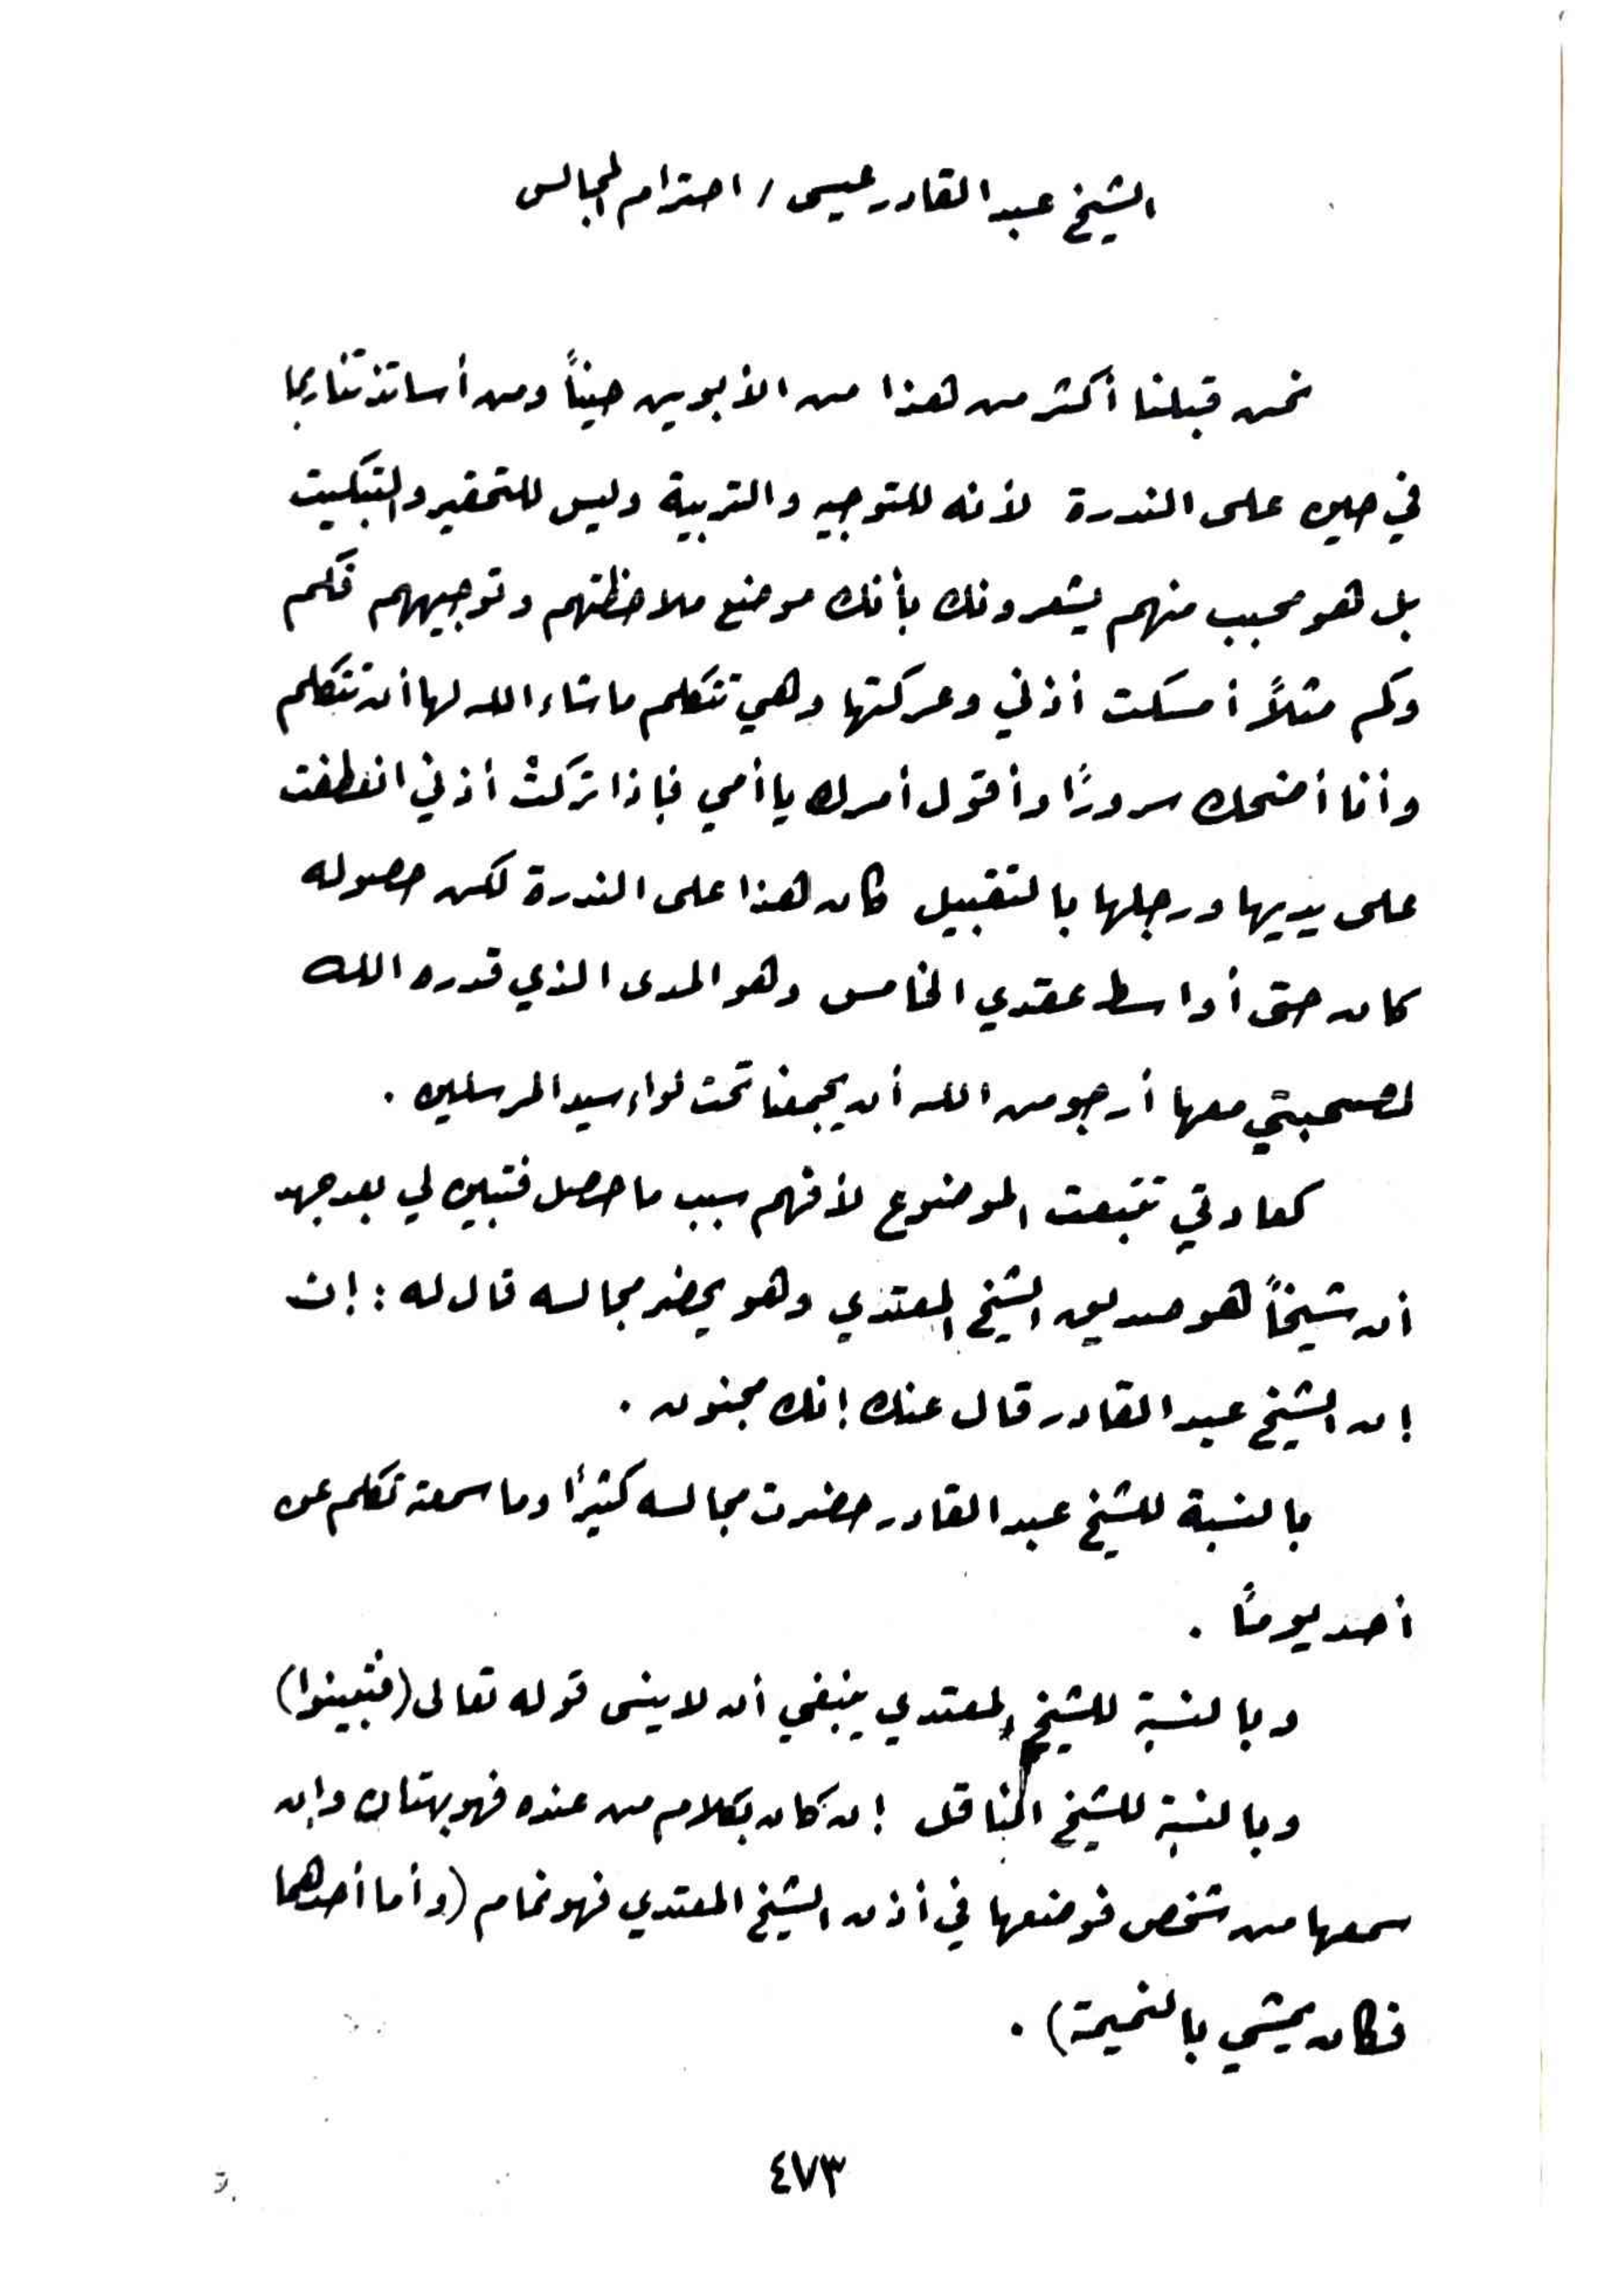 الشيخ عبد القادر عيسى / احترام المجالس
نحن قبلنا أكثر من هذا من الأبوين حيناً ومن أساتذتنا ربما
في حين على الندرة لأنه للتوجيه والتربية وليس للتحقير والتبكيت
بل هو محبب منهم يشعرونك بأنك موضع ملاحظتهم وتوجيههم فكم
وكم مثلاً أمسكت أذني وعركتها وهي تتكلم ما شاء الله لها أن تتكلم
وأنا أضحك سرورًا وأقول أمرك يا أمي فإذا تركتْ أذني انعطفت
على يديها ورجلها بالتقبيل كان هذا على الندرة لكن حصوله
كان حتى أواسط عقدي الخامس وهو المدى الذي قدره الله
لصحبتي معها أرجو من الله أن يجمعنا تحت لواء سيد المرسلين .
كعادتي تتبعت الموضوع لأفهم سبب ما حصل فتبين لي بعد جهد
أن شيخاً هو صديق الشيخ المعتدي وهو يحضر مجالسه قال له : إن
إن الشيخ عبد القادر قال عنك إنك مجنون .
بالنسبة للشيخ عبد القادر حضرت مجالسه كثيرًا وما سمعته تكلم عن
أحد يومًا .
وبالنسبة للشيخ المعتدي ينبغي أن لا ينسى قوله تعالى (فتبينوا)
وبالنسبة للشيخ الناقل إن كان بكلام من عنده فهو بهتان وإن
سمعها من شخص فوضعها في أذن الشيخ المعتدي فهو نمام (وأما أحدهما
فكان يمشي بالنميمة) .
٤٧٣